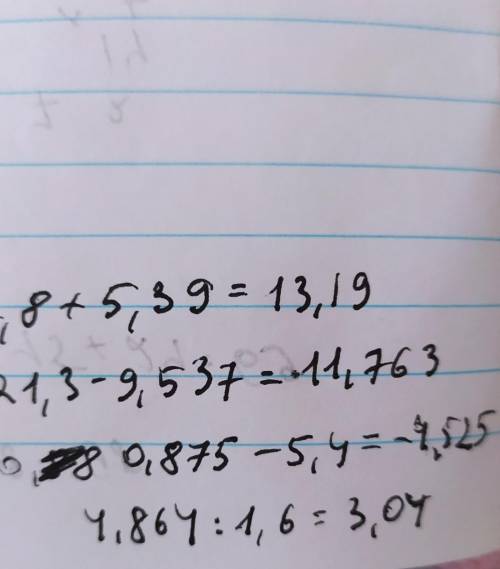 ,8 + 5,39 = 13,19
21,3 - 9,537 = 11,763
0,8 0,875 - 5,4 = -4,525
4,864 : 1,6 = 3,04